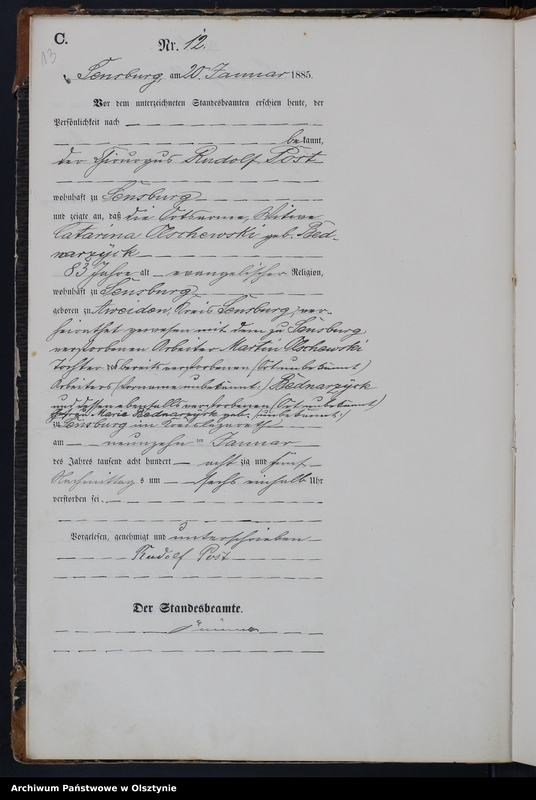 C.
13
Nr. 12.
Sensburg, am 20. Januar 1885.
Vor dem unterzeichneten Standesbeamten erschien heute, der
Persönlichkeit nach
bekannt,
der Chirurgus Rudolf Post
wohnhaft zu Sensburg
und zeigte an, daß die Ortsarme, Witwe
Catarina Olschewski geb. Bed-
narzyck
83 Jahre alt evangelischer Religion,
wohnhaft zu Sensburg
geboren zu Aweiden, Kreis Sensburg, ver-
heirathet gewesen mit dem zu Sensburg
verstorbenen Arbeiter Martin Olschewski
Tochter des bereits verstorbenen (Ort unbekannt)
Arbeiters (Vorname unbekannt) Bednarzyck
und dessen ebenfalls verstorbenen (Ort unbekannt)
Ehefrau Marie Bednarzyck geb. (unbekannt)
zu Sensburg im Kreislazareth
am neunzehnten Januar
des Jahres tausend acht hundert achtzig und fünf
Nachmittags um sechs einhalb Uhr
verstorben sei.
Vorgelesen, genehmigt und unterschrieben
Rudolf Post
Der Standesbeamte.
Archiwum Państwowe w Olsztynie